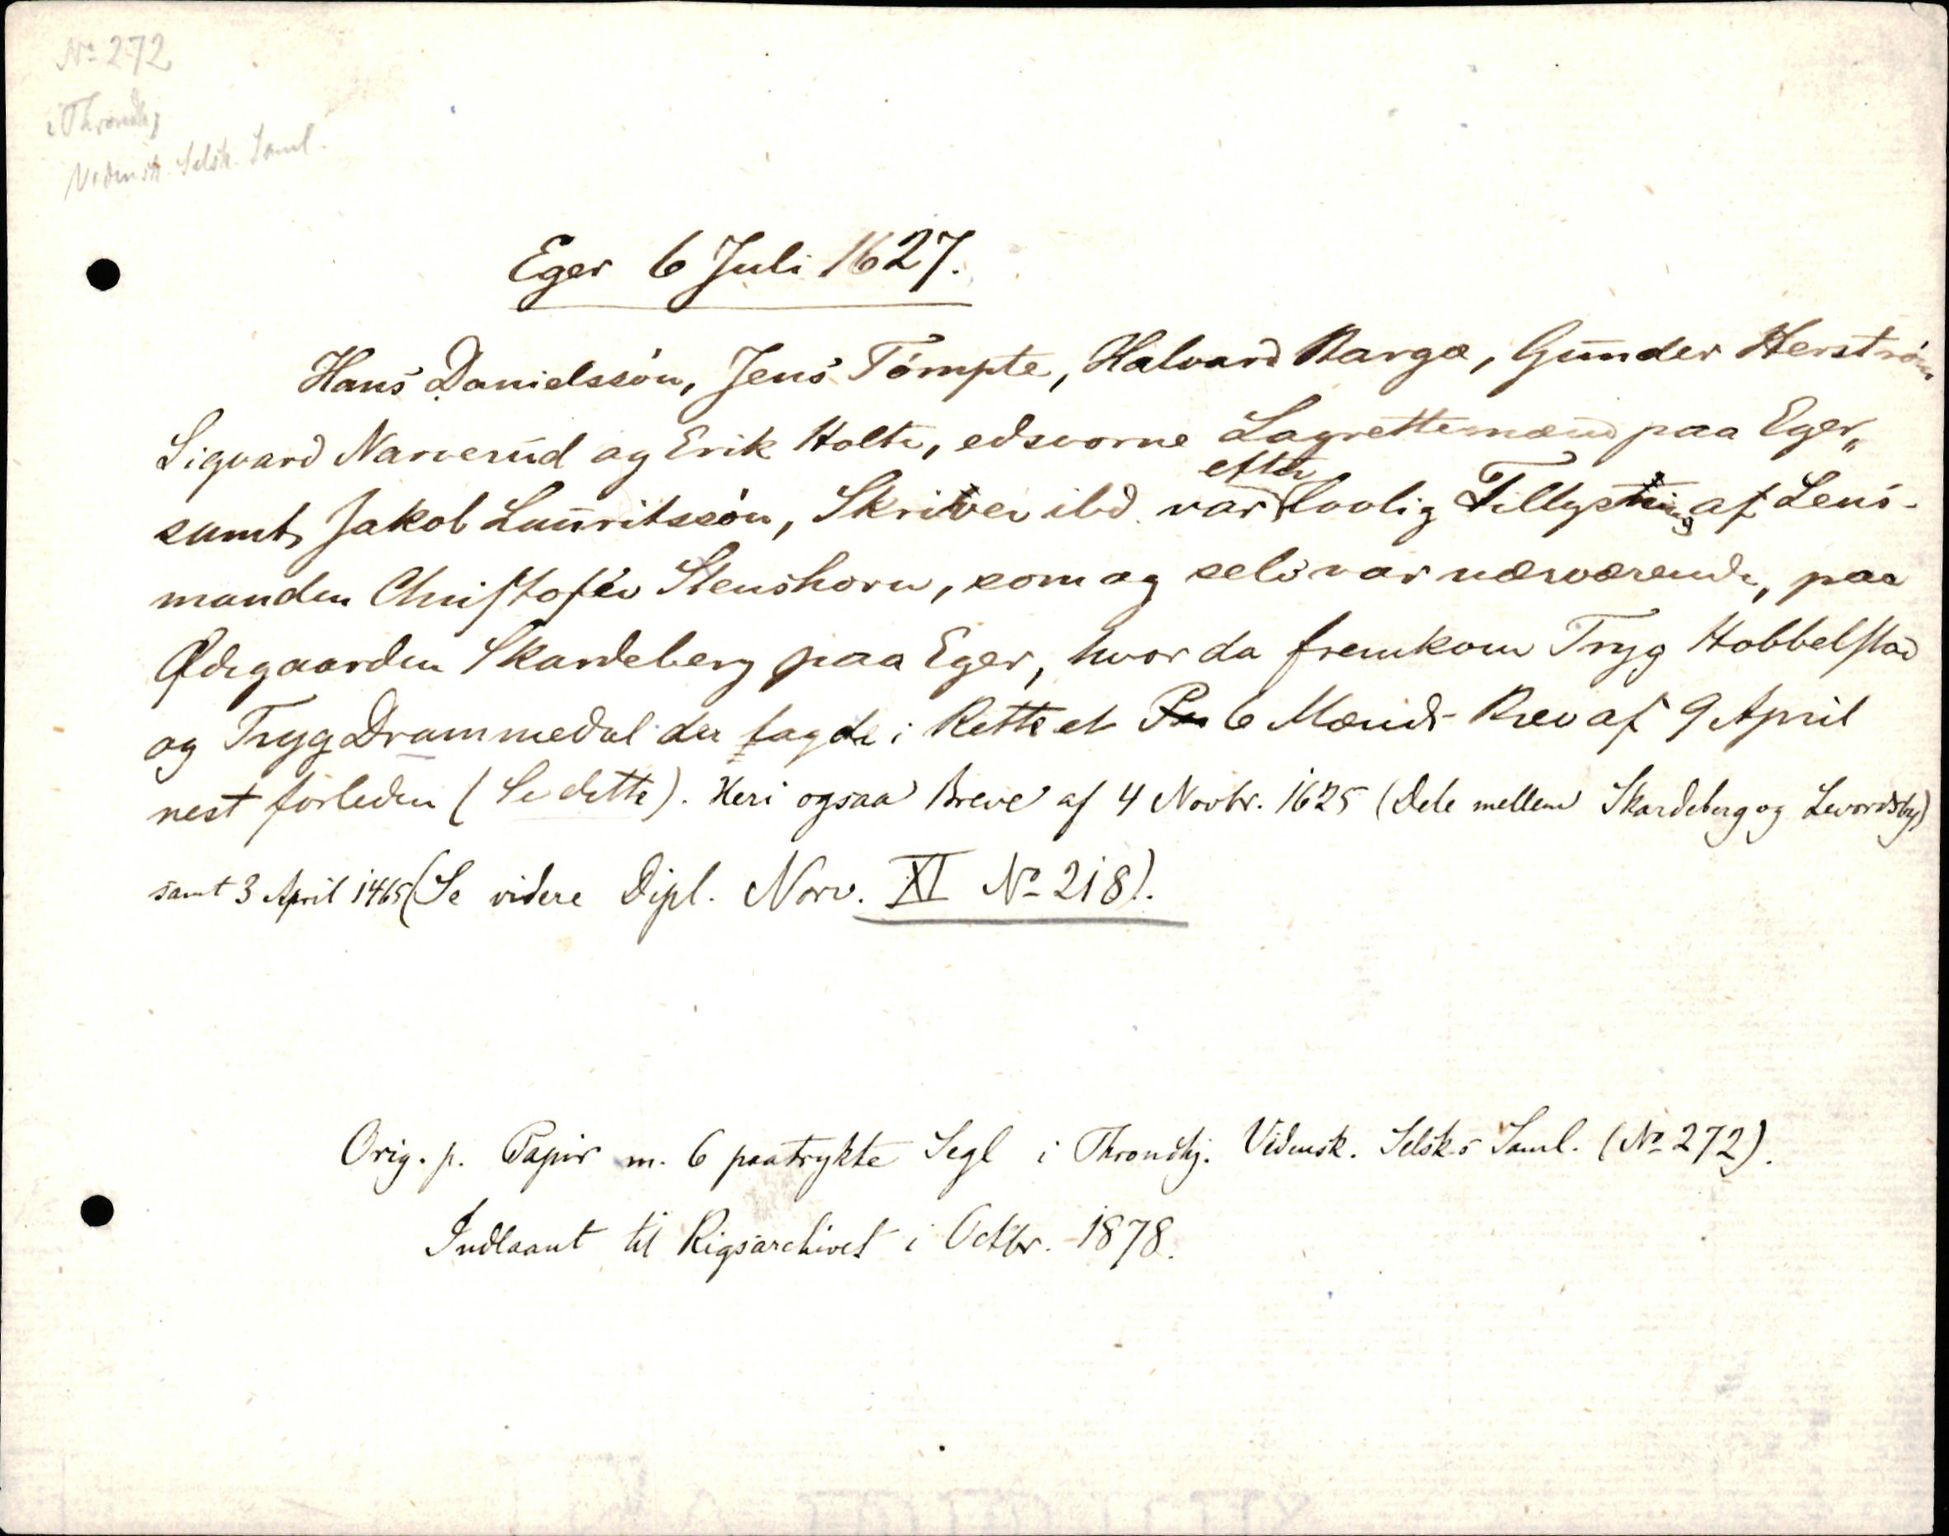 No 272
i Throndhj
Vidensk. Selsk. Saml.
Eger 6 Juli 1627.
Hans Danielssön, Jens Tömpte, Halvard Barga, Gunder Herström
Sigvard Narverud og Erik Holte, edsvorne Lagrettemænd paa Eger,
samt Jakob Lauritssön, Skriver ibd. var efter lovlig Tillysning af Lens-
manden Christofer Stenshorn, som og selv var nærværende, paa
Ødegaarden Skardeberg paa Eger, hvor da fremkom Tryg Hobbelstad
og Tryg Drammedal der lagde i Rette et 6 Mænds Brev af 9 April
nest forleden (Se dette). Heri ogsaa Breve af 4 Novbr. 1625 (Dele mellem Skardeberg og Levordsby)
samt 3 April 1465 (Se videre Dipl. Norv. XI No 218).
Orig. p. Papir m. 6 paatrykte Segl i Throndhj. Vidensk. Selsk.s Saml. (No 272).
Indlaant til Rigsarchivet i Octbr. 1878.